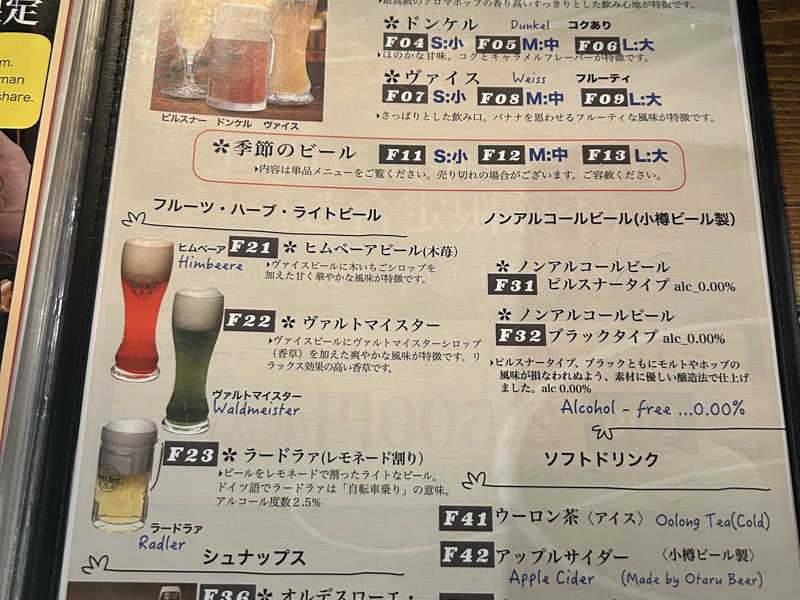 定
m.
man
share.
最高級のアロマホップの香り高いすっきりとした飲み心地が特徴です。
✲ドンケル Dunkel コクあり
F04 S:小 F05 M:中 F06 L:大
▸ほのかな甘味、コクとキャラメルフレーバーが特徴です。
✲ヴァイス Weiss フルーティ
F07 S:小 F08 M:中 F09 L:大
▸さっぱりとした飲み口。バナナを思わせるフルーティな風味が特徴です。
ピルスナー ドンケル ヴァイス
✲季節のビール F11 S:小 F12 M:中 F13 L:大
▸内容は単品メニューをご覧ください。売り切れの場合がございます。ご容赦ください。
フルーツ・ハーブ・ライトビール
ヒムベーア
Himbeere
F21 ✲ ヒムベーアビール(木苺)
▸ヴァイスビールに木いちごシロップを
加えた甘く華やかな風味が特徴です。
F22 ✲ ヴァルトマイスター
▸ヴァイスビールにヴァルトマイスターシロップ
（香草）を加えた爽やかな風味が特徴です。リ
ラックス効果の高い香草です。
ヴァルトマイスター
Waldmeister
F23 ✲ ラードラァ(レモネード割り)
▸ビールをレモネードで割ったライトなビール。
ドイツ語でラードラァは「自転車乗り」の意味。
アルコール度数２.５%
ラードラァ
Radler
シュナップス
F36 ✲ オルデスローエ・
ノンアルコールビール(小樽ビール製)
✲ ノンアルコールビール
F31 ピルスナータイプ alc_0.00%
✲ ノンアルコールビール
F32 ブラックタイプ alc_0.00%
▸ピルスナータイプ、ブラックともにモルトやホップの
風味が損なわれぬよう、素材に優しい醸造法で仕上げ
ました。alc 0.00%
Alcohol - free ...0.00%
ソフトドリンク
F41 ウーロン茶〈アイス〉 Oolong Tea(Cold)
F42 アップルサイダー 〈小樽ビール製〉
Apple Cider (Made by Otaru Beer)